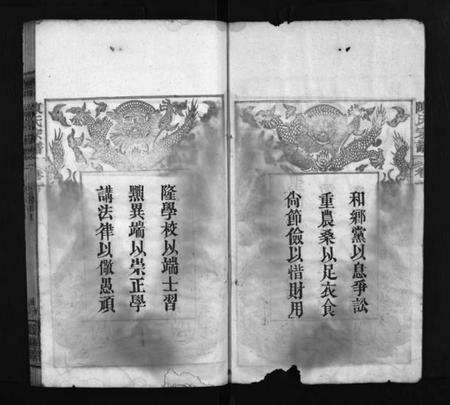 和鄉黨以息爭訟
重農桑以足衣食
尙節儉以惜財用
隆學校以端士習
黜異端以崇正學
講法律以儆愚頑